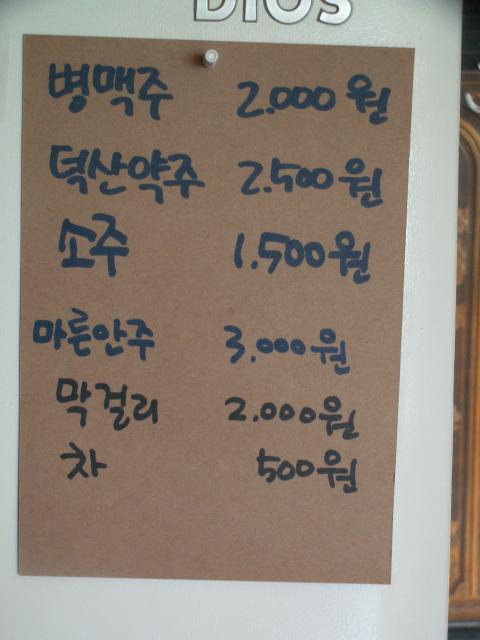 DIOS
병맥주 2.000원
덕산약주 2.500원
소주 1.500원
마른안주 3.000원
막걸리 2.000원
차 500원